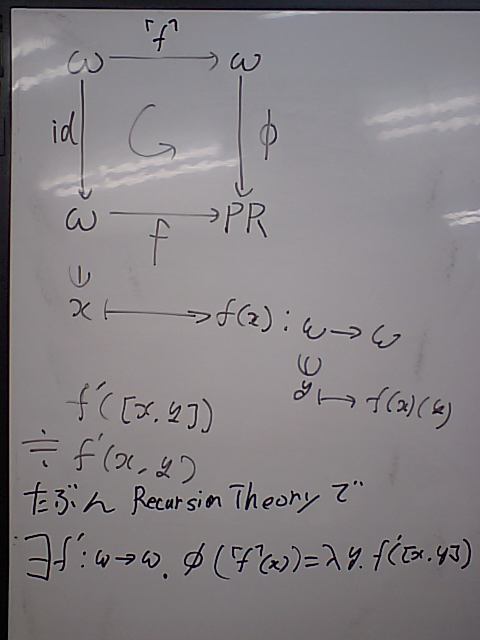 ⌜f⌝
ω → ω
id ↓ ↓ φ
ω → PR
f
x ↦ f(x) : ω → ω
y ↦ f(x)(y)
f'([x, y])
≒ f'(x, y)
たぶん Recursion Theory で
∃f' : ω → ω. φ(⌜f⌝(x)) = λy. f'([x, y])